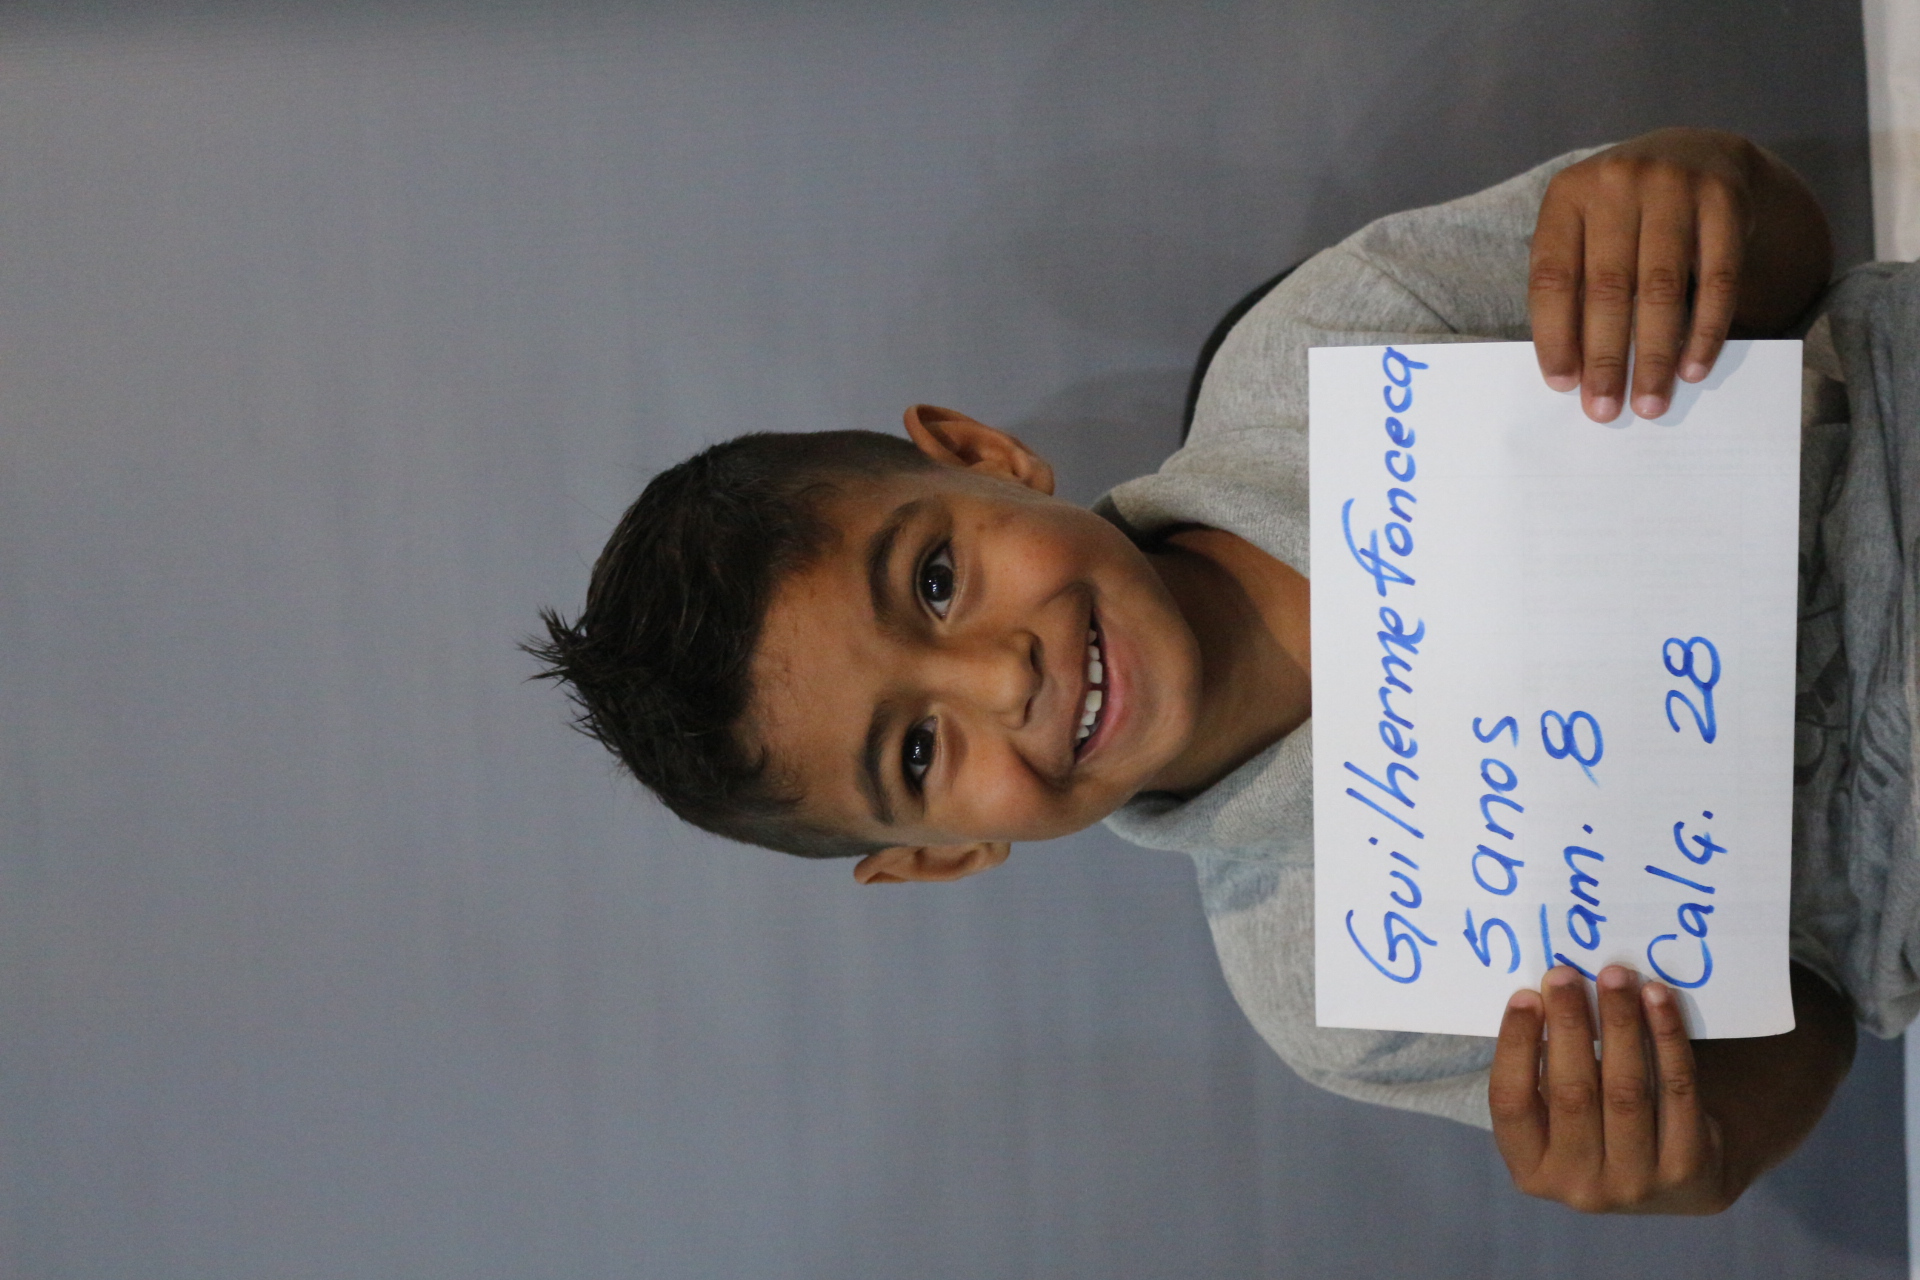 Guilherme Fonceca
5 anos
Tam. 8
Calç. 28